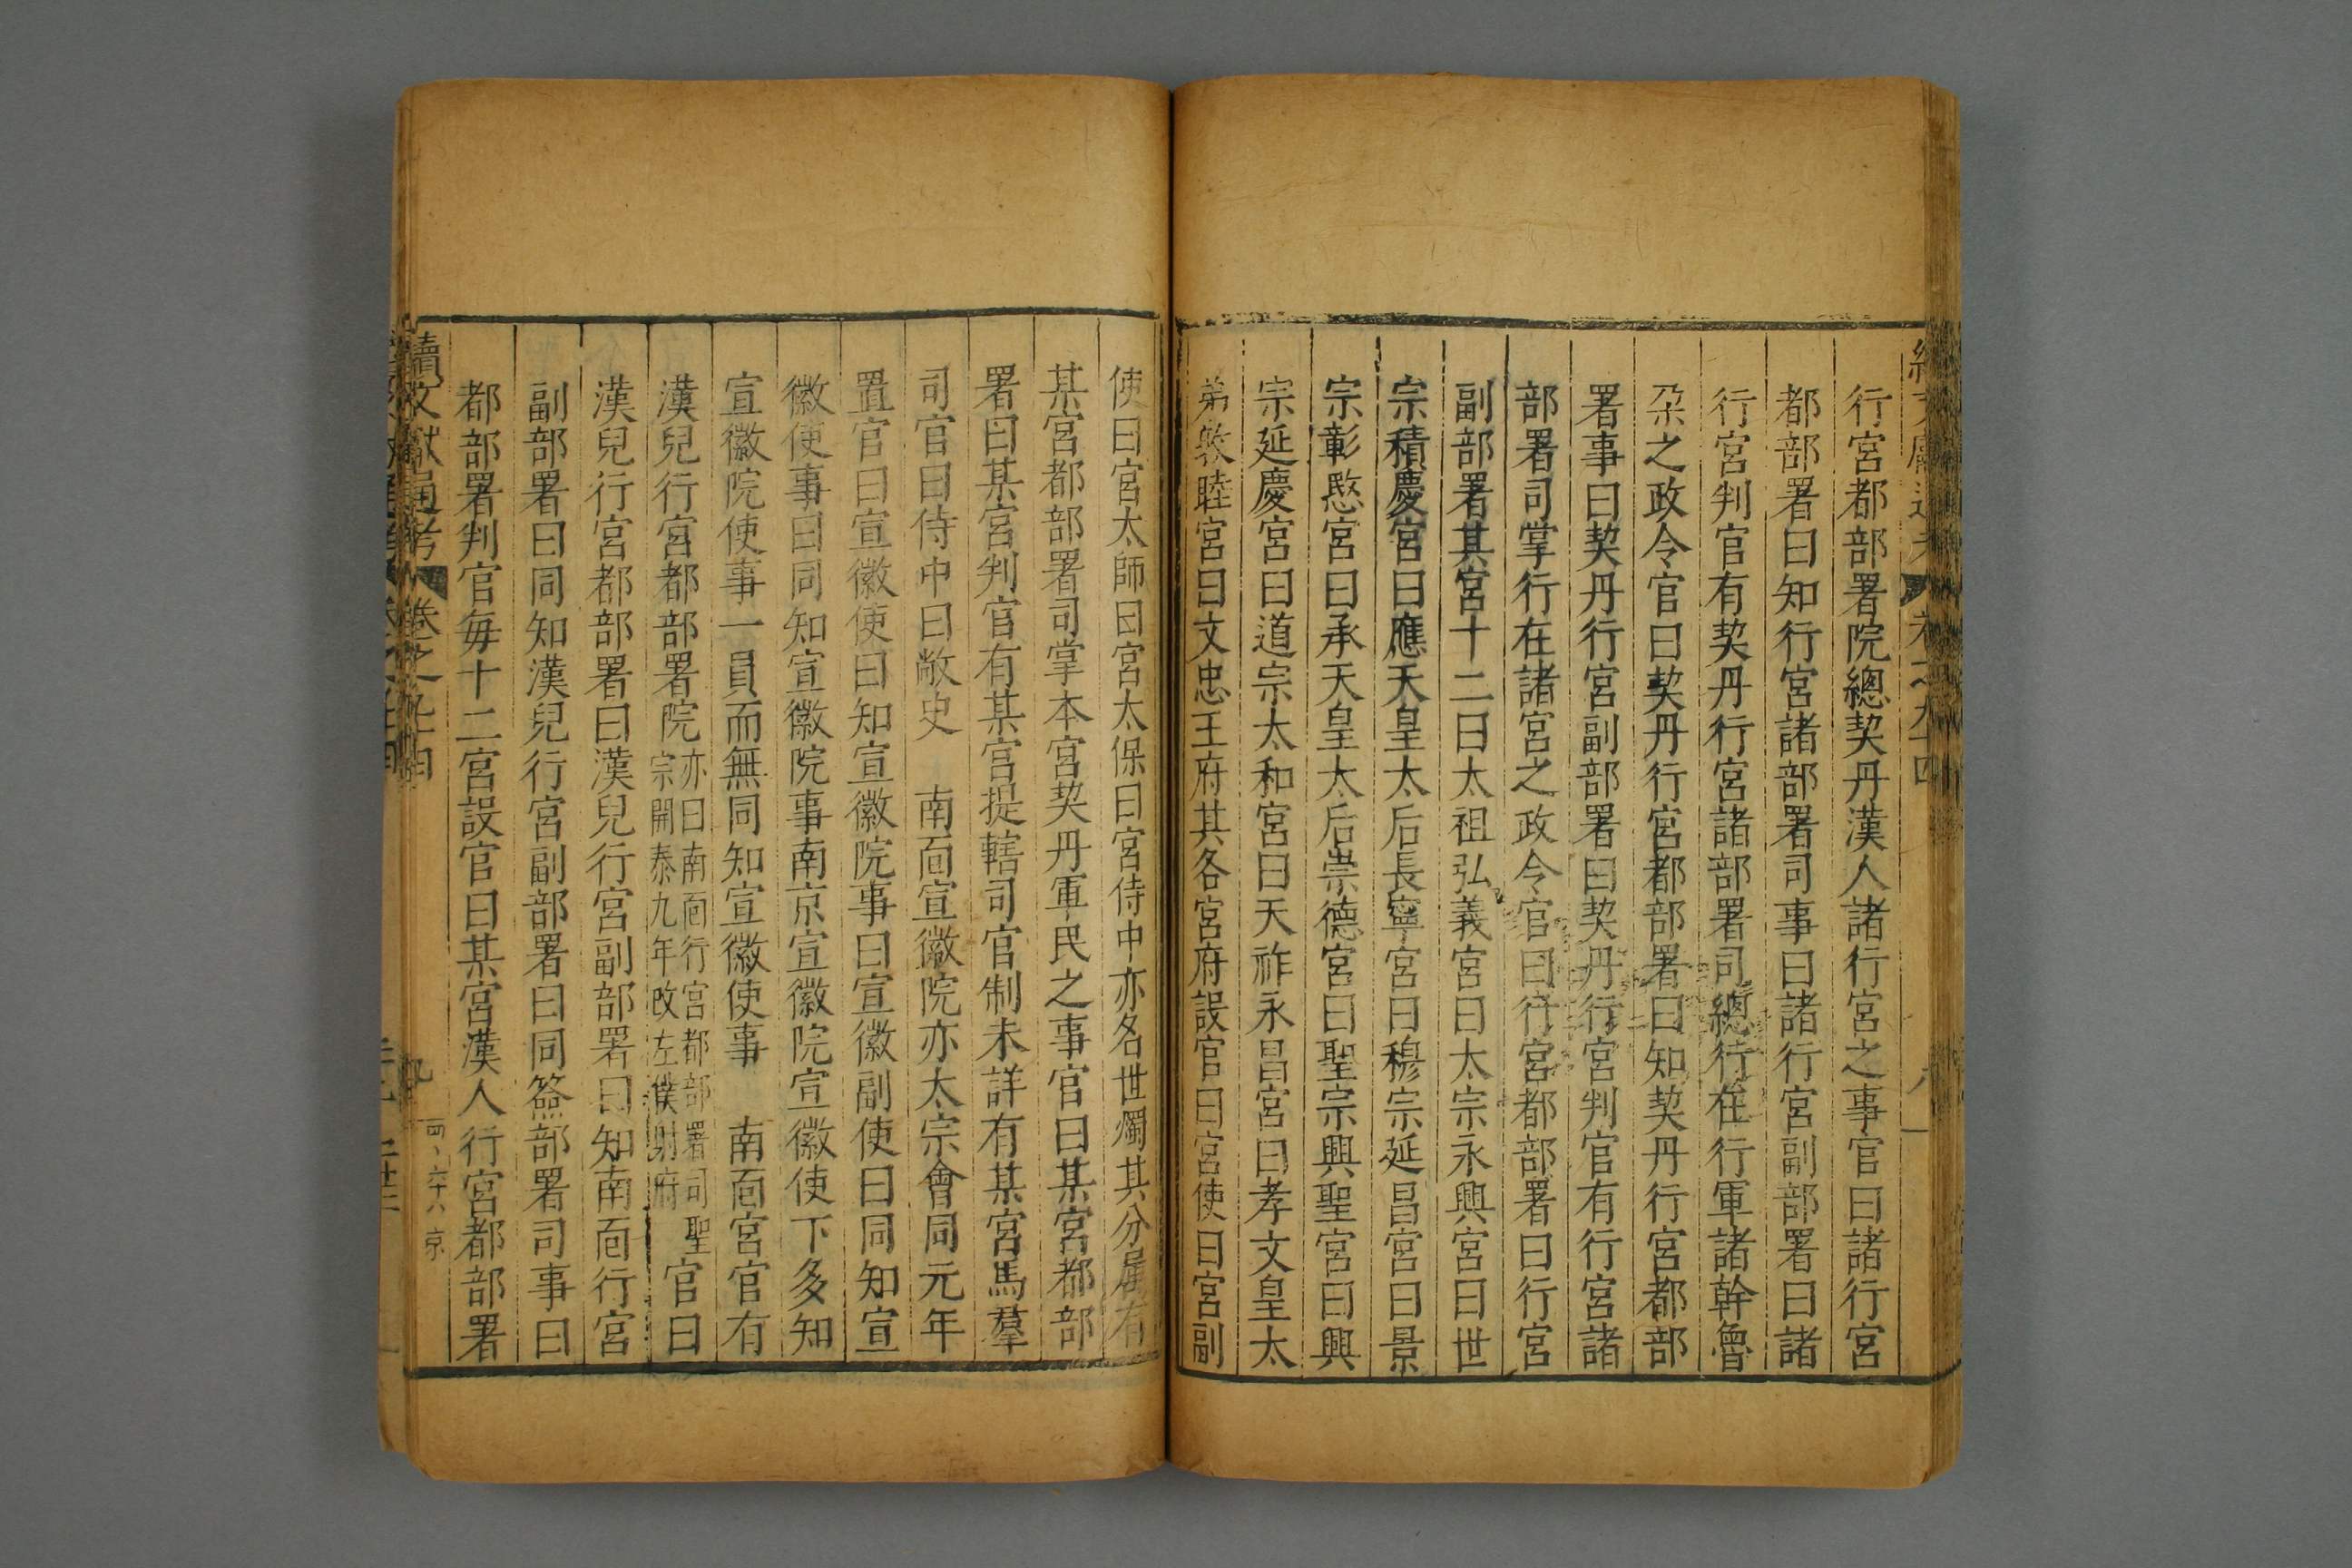 行宮都部署院總契丹漢人諸行宮之事官曰諸行宮
都部署曰知行宮諸部署司事曰諸行宮副部署曰諸
行宮判官有契丹行宮諸部署司總行在行軍諸斡魯
朶之政令官曰契丹行宮都部署曰知契丹行宮都部
署事曰契丹行宮副部署曰契丹行宮判官有行宮諸
部署司掌行在諸宮之政令官曰行宮都部署曰行宮
副部署其宮十二曰太祖弘義宮曰太宗永興宮曰世
宗積慶宮曰應天皇太后長寧宮曰穆宗延昌宮曰景
宗彰愍宮曰承天皇太后崇德宮曰聖宗興聖宮曰興
宗延慶宮曰道宗太和宮曰天祚永昌宮曰孝文皇太
弟敦睦宮曰文忠王府其各宮府設官曰宮使曰宮副
使曰宮太師曰宮太保曰宮侍中亦名世燭其分屬有
某宮都部署司掌本宮契丹軍民之事官曰某宮都部
署曰某宮判官有某宮提轄司官制未詳有某宮馬羣
司官曰侍中曰敞史　南面宣徽院亦太宗會同元年
置官曰宣徽使曰知宣徽院事曰宣徽副使曰同知宣
徽使事曰同知宣徽院事南京宣徽院宣徽使下多知
宣徽院使事一員而無同知宣徽使事　南面宮官有
漢兒行宮都部署院亦曰南面行宮都部署司聖宗開泰九年改左僕射府官曰
漢兒行宮都部署曰漢兒行宮副部署曰知南面行宮
副部署曰同知漢兒行宮副部署曰同簽部署司事曰
都部署判官每十二宮設官曰某宮漢人行宮都部署
續文獻通考　卷之九十四　九